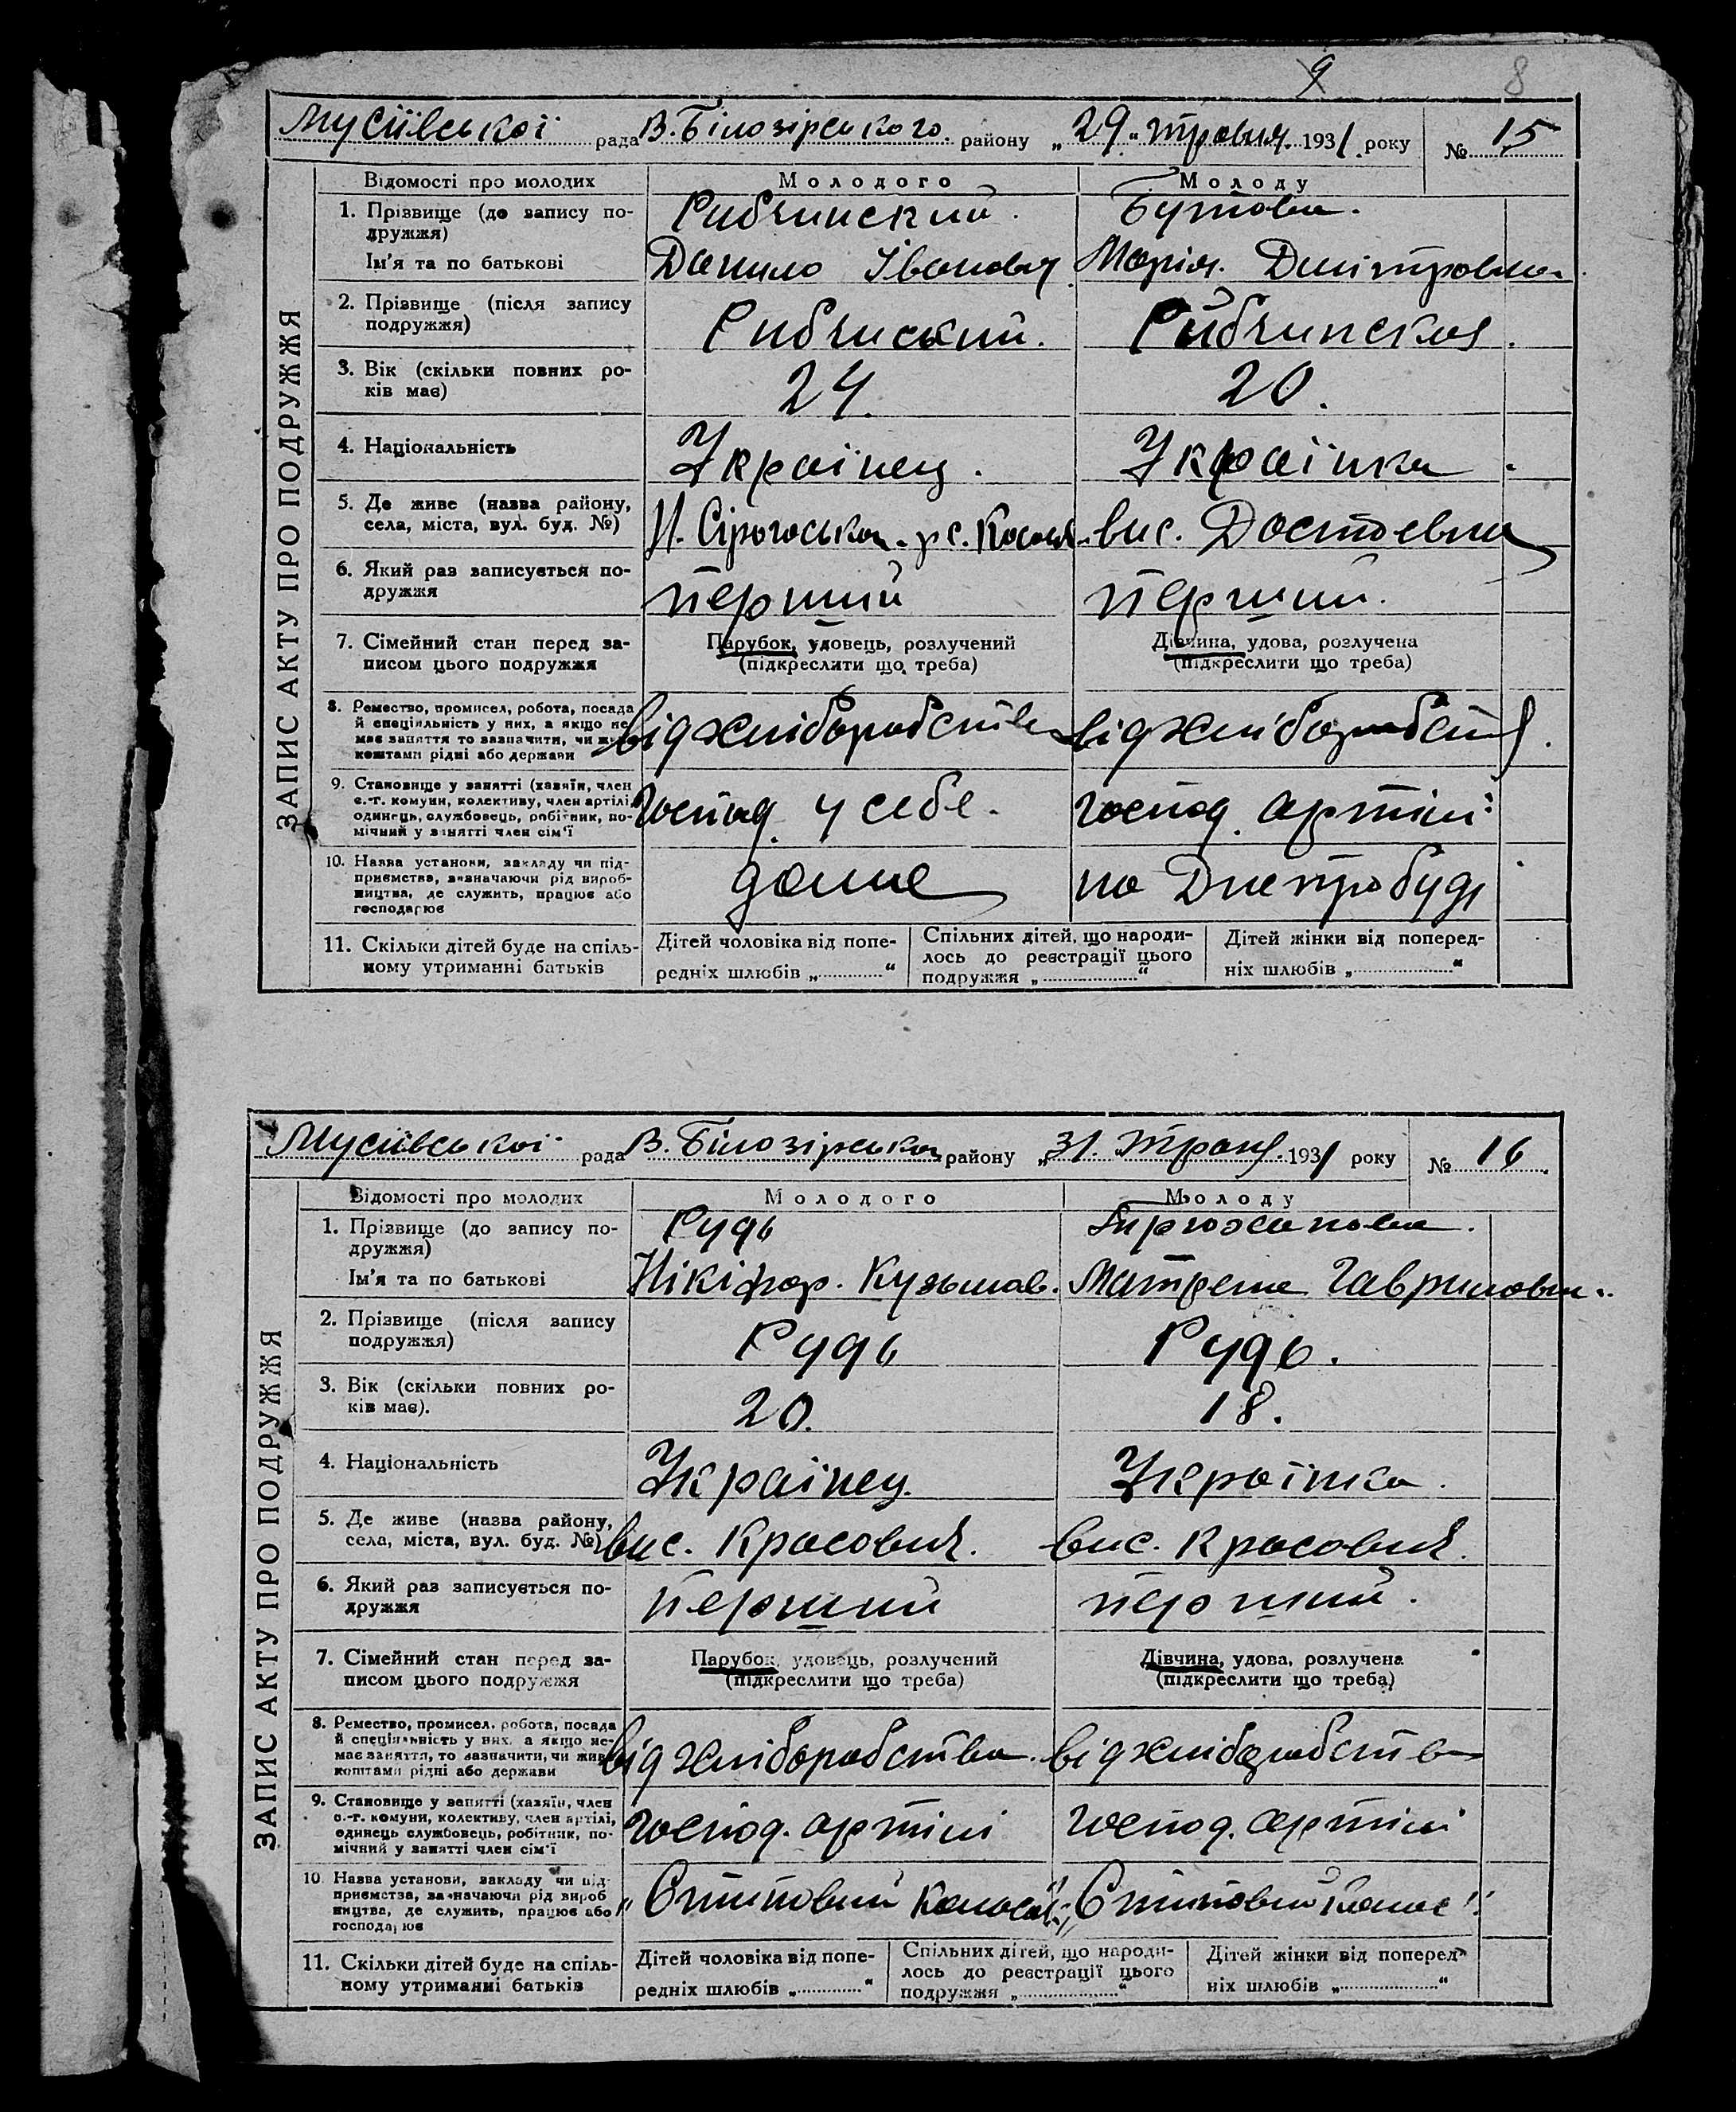 9 8
Мусіївської рада В. Білозірського району „29" травня 1931 року № 15
ЗАПИС АКТУ ПРО ПОДРУЖЖЯ
Відомості про молодих Молодого Молоду
1. Прізвище (до запису по- Рибчинский. Бутова.
дружжя)
Ім'я та по батькові Данило Іванович Марія. Дмітровна
2. Прізвище (після запису
подружжя) Рибчиський. Рибчинская.
3. Вік (скільки повних ро-
ків має) 24. 20.
4. Національність Українец. Українка.
5. Де живе (назва району,
села, міста, вул. буд. №) Н. Сірогоськ. р с. вис. Достоевка
6. Який раз записується по-
дружжя перший перший.
7. Сімейний стан перед за- Парубок, удовець, розлучений Дівчина, удова, розлучена
писом цього подружжя (підкреслити що треба) (підкреслити що треба)
8. Ремество, промисел, робота, посада
й спеціяльність у них, а якщо не
має заняття то зазначити, чи живе від хліборобства від хліборобств.
коштами рідні або держави
9. Становище у занятті (хазяїн, член
с.-г. комуни, колективу, член артілі,
одинець, службовець, робітник, по- господ. у себе. господ. артілі
мічний у занятті член сім'ї
10. Назва установи, закладу чи під-
приємства, зазначаючи рід вироб-
ництва, де служить, працює або дома на Днепробуді
господарює
11. Скільки дітей буде на спіль- Дітей чоловіка від попе- Спільних дітей, що народи- Дітей жінки від поперед-
ному утриманні батьків редніх шлюбів „ " лось до реєстрації цього ніх шлюбів „ "
подружжя „ "
Мусіївської рада В. Білозірськог району „31. 1931 року № 16.
ЗАПИС АКТУ ПРО ПОДРУЖЖЯ
Відомості про молодих Молодого Молоду
1. Прізвище (до запису по- Рудь
дружжя)
Ім'я та по батькові Нікіфор. Кузьмов. Матрена Гавриловн.
2. Прізвище (після запису
подружжя) Рудь Рудь.
3. Вік (скільки повних ро-
ків має). 20. 18.
4. Національність Українец. Українка.
5. Де живе (назва району,
села, міста, вул. буд. №) вис. Красовий. вис. Красовий.
6. Який раз записується по-
дружжя перший перший.
7. Сімейний стан перед за- Парубок, удовець, розлучений Дівчина, удова, розлучена
писом цього подружжя (підкреслити що треба) (підкреслити що треба)
8. Ремество, промисел, робота, посада
й спеціяльність у них, а якщо не-
має заняття, то зазначити, чи живе від хліборобства. від хліборобства
коштами рідні або держави
9. Становище у занятті (хазяїн, член
с.-г. комуни, колективу, член артілі,
одинець службовець, робітник, по- господ. артілі господ. артілі
мічний у занятті член сім'ї
10. Назва установи, закладу чи під-
приємства, зазначаючи рід вироб „Степовий Колос" „Степовий Колос"
ництва, де служить, працює або
господарює
11. Скільки дітей буде на спіль- Дітей чоловіка від попе- Спільних дітей, що народи- Дітей жінки від поперед-
ному утриманні батьків редніх шлюбів „ " лось до реєстрації цього ніх шлюбів „ "
подружжя „ "